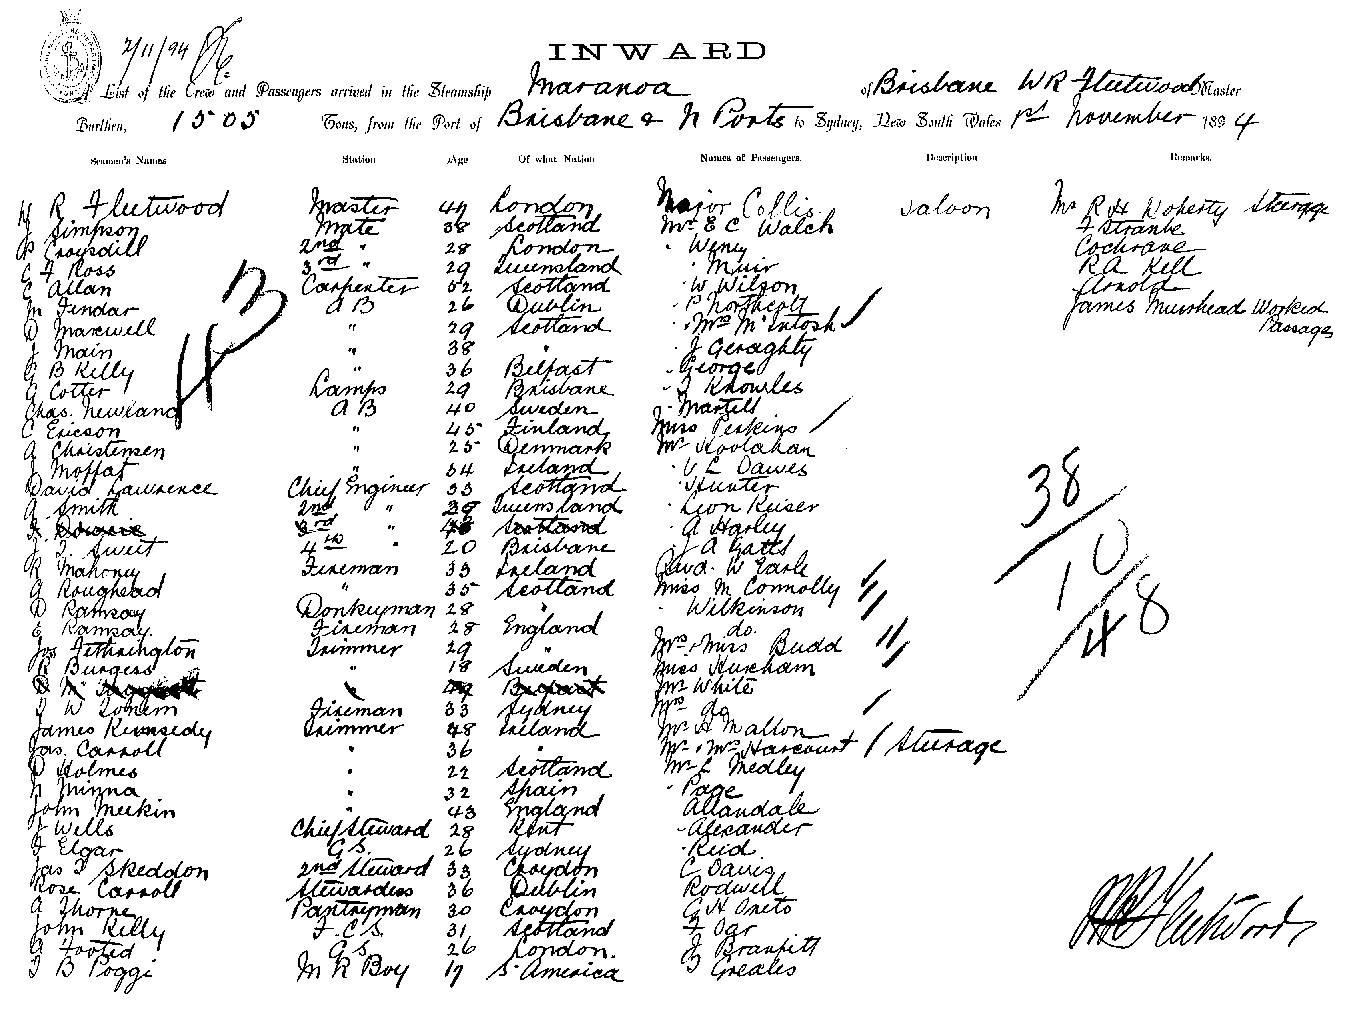 2/11/94
INWARD
A List of the Crew and Passengers arrived in the Steamship Maranoa of Brisbane W R Fleetwood Master
Burthen, 1505 Tons, from the Port of Brisbane & N Ports to Sydney, New South Wales 1st November 1894
Seamen's Names Station Age Of what Nation Names of Passengers. Description Remarks.
W R Fleetwood Master 44 London Major Collis Saloon Mr R H Doherty Steerage
J Simpson Mate 38 Scotland Mr E C Walch F Strambe
P Croysdill 2nd " 28 London " Weney Cochrane
C F Ross 3rd " 29 Queensland " Muir R A Kell
C Allan Carpenter 52 Scotland " W Wilson Arnold
M Findar A B 26 Dublin " P Northcott James Muirhead Worked Passage
D Maxwell " 29 Scotland " Mrs McIntosh
J Main " 38 " J Geraghty
P B Kelly " 36 Belfast " George
G Cotter Lamps 29 Brisbane " J Knowles
Chas. Newland A B 40 Sweden " Martell
C Ericson " 45 Finland Miss Perkins
A Christensen " 25 Denmark Mr Hoolahan
J Moffat " 34 Ireland " V L Dawes
David Lawrence Chief Engineer 33 Scotland " Hunter
A Smith 2nd " 39 Queensland " Leon Keiser
Downie 3rd " Scotland " A Harley
J T Sweet 4th " 20 Brisbane " J A Gatts
R Mahoney Fireman 33 Ireland Revd. W Earle
A Roughead " 35 Scotland Miss M Connolly
D Ramsay Donkeyman 28 " " Wilkinson
E Ramsay Fireman 28 England do
Jas Fetherington Trimmer 29 " Mrs & Miss Budd
R Burgess " 18 Sweden Miss Hurcham
" 49 Belfast Mr White
J W Fireman 33 Sydney Mrs do
James Kennedy Trimmer 48 Ireland Mr H Mallon
Jas. Carroll " 36 " Mr & Mrs Harcourt / Steerage
P Holmes " 22 Scotland Mr L Medley
N Minna " 32 Spain " Page
John Meekin " 43 England Allandale
J Wells Chief Steward 28 Kent " Alexander
F Elgar G.S. 26 Sydney " Reid
Jas T Skeddon 2nd Steward 33 Croydon C Davis
Rose Carroll Stewardess 36 Dublin Rodwell
A Thorne Pantryman 30 Croydon G H Oneto
John Kelly F.C.S. 31 Scotland F Oar
A Footed G S 26 London. J Branfitt
T B Poggi M R Boy 17 S. America T Greales
43
38
10
48
W R Fleetwood